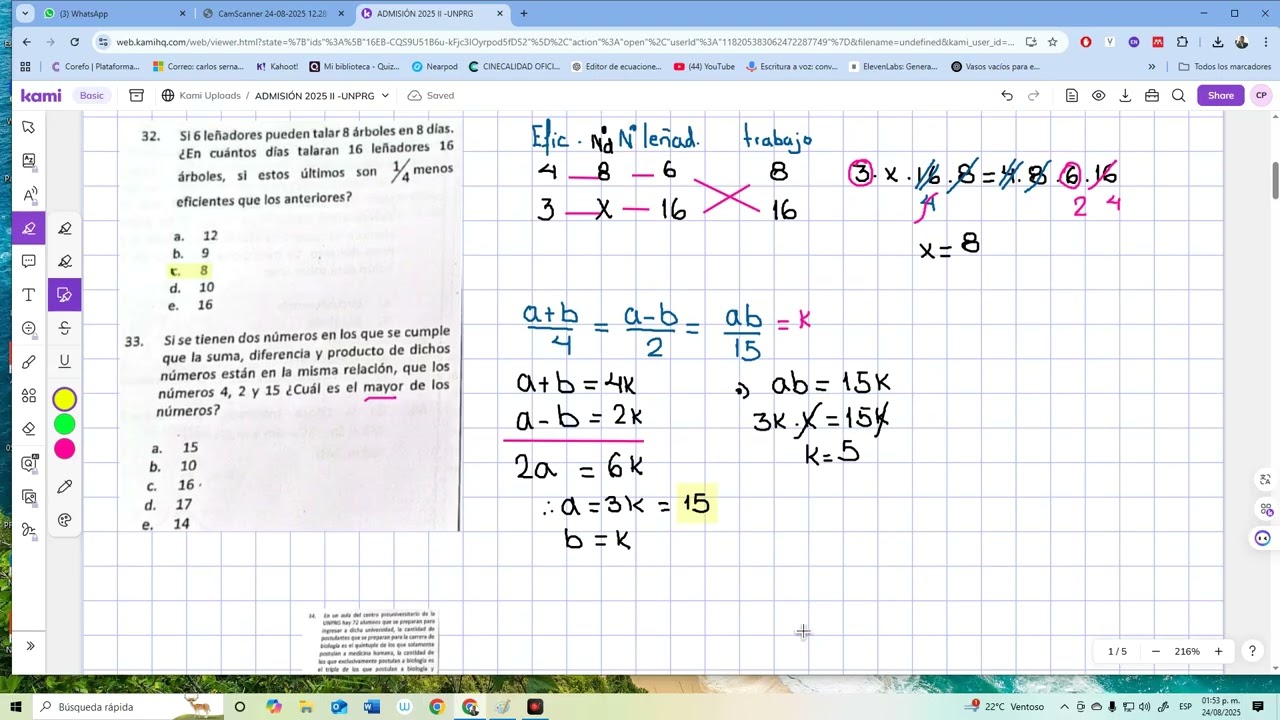 (3) WhatsApp
CamScanner 24-08-2025 12.28
ADMISIÓN 2025 II -UNPRG
web.kamihq.com/web/viewer.html?state=%7B"ids"%3A%5B"16EB-CQS9U51B6u-kFjc3IOyrpod5fD52"%5D%2C"action"%3A"open"%2C"userId"%3A"118205383062472287749"%7D&filename=undefined&kami_user_id=...
Corefo | Plataforma...
Correo: carlos serna...
Kahoot!
Mi biblioteca - Quiz...
Nearpod
CINECALIDAD OFICI...
Editor de ecuacione...
(44) YouTube
Escritura a voz: conv...
ElevenLabs: Genera...
Vasos vacíos para e...
Todos los marcadores
kami Basic
Kami Uploads / ADMISIÓN 2025 II -UNPRG
Saved
Share
CP
32. Si 6 leñadores pueden talar 8 árboles en 8 días.
¿En cuántos días talaran 16 leñadores 16
árboles, si estos últimos son 1/4 menos
eficientes que los anteriores?
a. 12
b. 9
c. 8
d. 10
e. 16
Efic. Nd N° leñad. trabajo
4 — 8 — 6 8
3 — X — 16 16
3 · x · 16 · 8 = 4 · 8 · 6 · 16
4 2 4
x = 8
33. Si se tienen dos números en los que se cumple
que la suma, diferencia y producto de dichos
números están en la misma relación, que los
números 4, 2 y 15 ¿Cuál es el mayor de los
números?
a. 15
b. 10
c. 16
d. 17
e. 14
a+b/4 = a-b/2 = ab/15 = k
a+b = 4k
a-b = 2k
2a = 6k
∴ a = 3k = 15
b = k
ab = 15k
3k · k = 15k
k = 5
34. En un aula del centro preuniversitario de la
UNPRG hay 72 alumnos que se preparan para
ingresar a dicha universidad, la cantidad de
postulantes que se preparan para la carrera de
biología es el quíntuple de los que solamente
postulan a medicina humana, la cantidad de
los que exclusivamente postulan a biología es
el triple de los que postulan a biología y
1 / 5
216%
Búsqueda rápida
22°C Ventoso
ESP
01:53 p. m.
24/08/2025